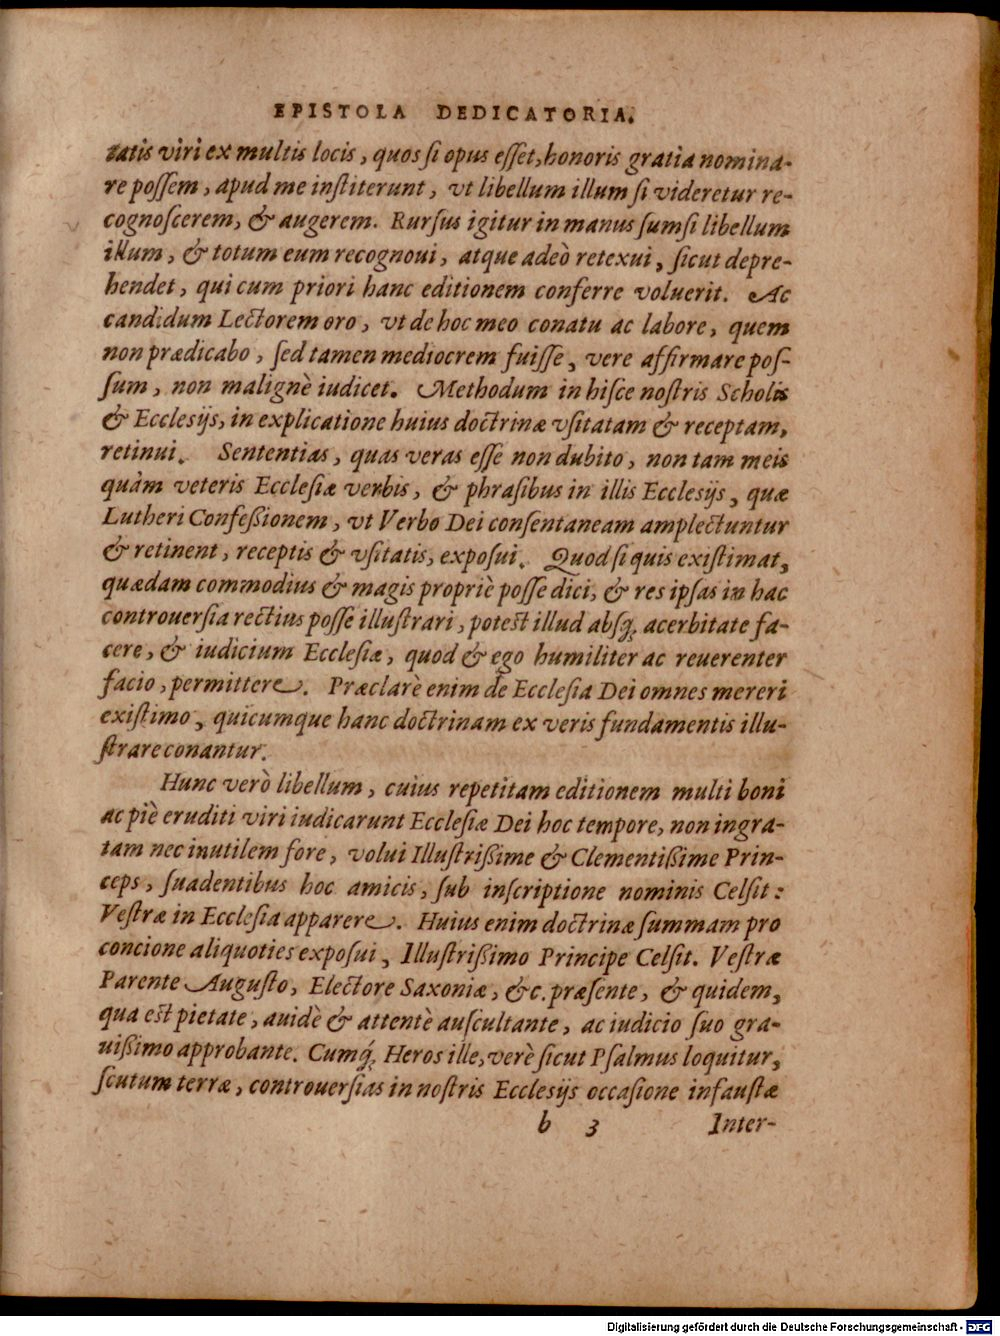 EPISTOLA DEDICATORIA.
tatis viri ex multis locis, quos si opus esset, honoris gratia nomina-
re possem, apud me institerunt, vt libellum illum si videretur re-
cognoscerem, & augerem. Rursus igitur in manus sumsi libellum
illum, & totum eum recognoui, atque adeò retexui, sicut depre-
hendet, qui cum priori hanc editionem conferre voluerit. Ac
candidum Lectorem oro, vt de hoc meo conatu ac labore, quem
non prædicabo, sed tamen mediocrem fuisse, vere affirmare pos-
sum, non malignè iudicet. Methodum in hisce nostris Scholis
& Ecclesijs, in explicatione huius doctrinæ vsitatam & receptam,
retinui. Sententias, quas veras esse non dubito, non tam meis
quàm veteris Ecclesiæ verbis, & phrasibus in illis Ecclesijs, quæ
Lutheri Confeßionem, vt Verbo Dei consentaneam amplectuntur
& retinent, receptis & vsitatis, exposui. Quod si quis existimat,
quædam commodius & magis propriè posse dici, & res ipsas in hac
controuersia rectius posse illustrari, potest illud absq; acerbitate fa-
cere, & iudicium Ecclesiæ, quod & ego humiliter ac reuerenter
facio, permittere. Præclarè enim de Ecclesia Dei omnes mereri
existimo, quicumque hanc doctrinam ex veris fundamentis illu-
strare conantur.
Hunc verò libellum, cuius repetitam editionem multi boni
ac piè eruditi viri iudicarunt Ecclesiæ Dei hoc tempore, non ingra-
tam nec inutilem fore, volui Illustrißime & Clementißime Prin-
ceps, suadentibus hoc amicis, sub inscriptione nominis Celsit:
Vestræ in Ecclesia apparere. Huius enim doctrinæ summam pro
concione aliquoties exposui, Illustrißimo Principe Celsit. Vestræ
Parente Augusto, Electore Saxoniæ, &c. præsente, & quidem,
qua est pietate, auidè & attentè auscultante, ac iudicio suo gra-
uißimo approbante. Cumq́; Heros ille, verè sicut Psalmus loquitur,
scutum terræ, controuersias in nostris Ecclesijs occasione infaustæ
b 3 Inter-
Digitalisierung gefördert durch die Deutsche Forschungsgemeinschaft - DFG